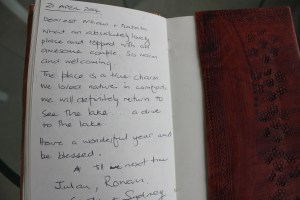 Dearest
What an absolutely lovely
place and topped with an
awesome couple. So warm
and welcoming.
The place is a true charm.
We loved nature in
We will definitely return to
see the lake a drive
to the lake.
Have a wonderful year and
be blessed.
next time
Julian, Ronan
Sydney